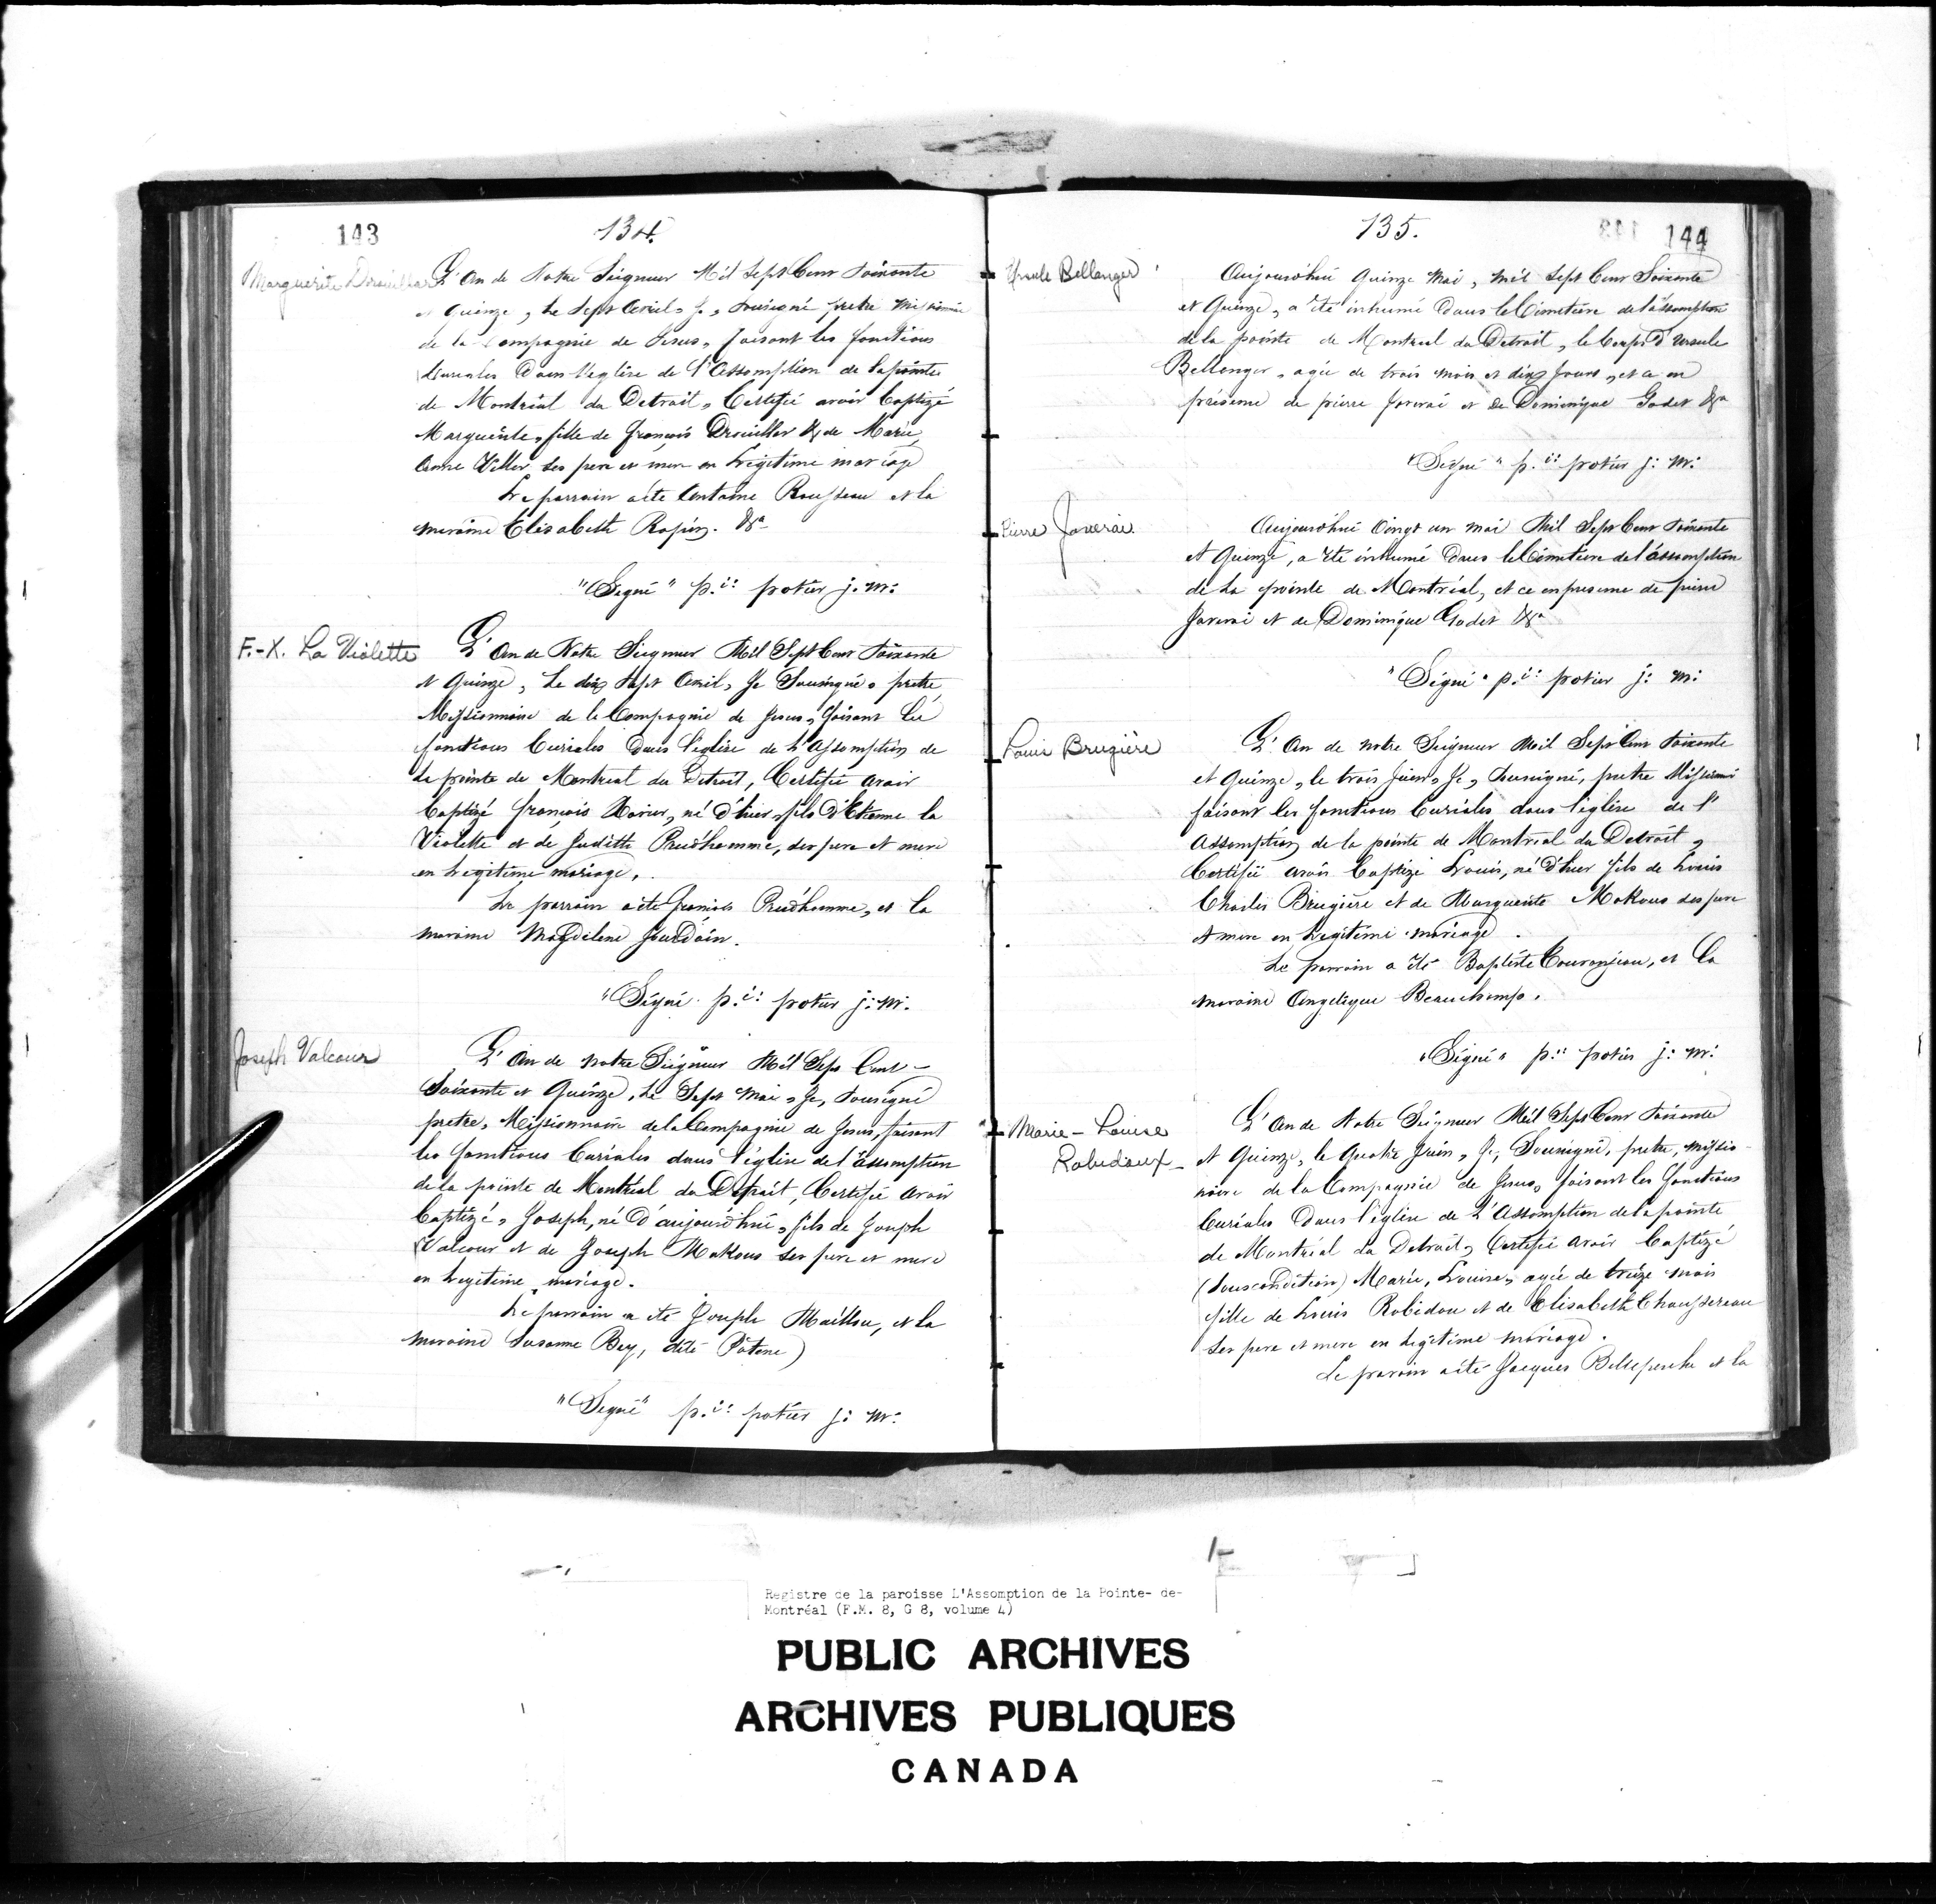 143
134.
Marguerite Drouillard
L'An de Notre Seigneur Mil Sept Cent Soixante
et Quinze, Le Sept Avril, Je, Sousigné pretre Missionne
de la Compagnie de Jesus, faisant les fonctions
Curiales Dans l'eglise de l'Assomption de la pointe
de Montréal du Detroit, Certifie avoir Baptizé
Marguerite, fille de françois Drouillar & de Marie
Anne Viller ses pere et mere en Legitime mariage
Le parrain a été Antoine Rousseau et la
maraine Elisabeth Rapin. &a
"Signé" p.i: potier j. m:
F.-X. La Violette
L'An de Notre Seigneur Mil Sept Cent Soixante
et Quinze, Le dix Sept Avril, Je Sousigné, pretre,
Missionnaire de la Compagnie de Jesus, faisant les
fonctions Curiales Dans l'église de L'Assomption de
la pointe de Montreal du Detroit, Certifie avoir
Baptizé françois Xavier, né d'hier, fils d'Etienne la
Violette et de Judith Prud'homme, ses pere et mere
en Legitime mariage.
Le parrain a été françois Prud'homme, et la
maraine Magdelene Jourdain.
"Signé p.i: potier j: m:
Joseph Valcour
L'An de notre Seigneur Mil Sept Cent -
Soixante et Quinze, Le Sept Mai, Je, Sousigné
pretre, Missionnaire de la Compagnie de Jesus, faisant
les fonctions Curiales dans l'église de l'assomption
de la pointe de Montréal du Detroit, Certifie avoir
Baptizé, Joseph, né d'aujourd'hui, fils de Joseph
Valcour et de Joseph Makous ses pere et mere
en Legitime mariage.
Le parrain a été Joseph Maillou, et la
maraine Susanne Bey, dite
"Signé" p.i: potier j: m:
135.
144
Ursule Bellanger
Aujourd'hui Quinze Mai, Mil Sept Cent Soixante
et Quinze, a été inhumé dans le Cimetiere de l'assomption
de la pointe de Montreal du Detroit, le Corps d'Ursule
Bellenger, agée de trois mois et dix jours, et ce en
présence de pierre Javerai et de Dominique Godet &a
"Signé" p.i: potier j: m:
Pierre Javerai.
Aujourd'hui Vingt un mai Mil Sept Cent Soixante
et Quinze, a été inhumé dans le Cimetiere de l'assomption
de La pointe de Montréal, et ce en presence de pierre
Javerai et de Dominique Godet &a
"Signé" p.i: potier j: m:
Louis Brugière
L'An de notre Seigneur Mil Sept Cent Soixante
et Quinze, le trois Juin, Je, Sousigné, pretre Missionné
faisant les fonctions Curiales dans l'église de l'
Assomption de la pointe de Montréal du Detroit,
Certifie avoir Baptizé Louis, né d'hier fils de Louis
Charles Brugiere et de Marguerite Makous ses pere
et mere en Legitime mariage.
Le parrain a été Baptiste Couronjeau, et la
maraine Angelique Beauchamp.
"Signé" p.i: potier j: m:
Marie-Louise
Robidoux
L'An de Notre Seigneur Mil Sept Cent Soixante
et Quinze, le Quatre Juin, Je, Sousigné, pretre, missio-
naire de la Compagnie de Jesus, faisant les fonctions
Curiales Dans l'église de L'Assomption de la pointe
de Montréal du Detroit, Certifie avoir Baptizé
(Sous condition) Marie, Louise, agée de treize mois
fille de Louis Robidou et de Elisabeth Chaussereau
Ses pere et mere en Legitime mariage.
Le parrain a été Jacques Belleperche et la
Registre de la paroisse L'Assomption de la Pointe- de-
Montréal (F.M. 8, G 8, volume 4)
PUBLIC ARCHIVES
ARCHIVES PUBLIQUES
CANADA